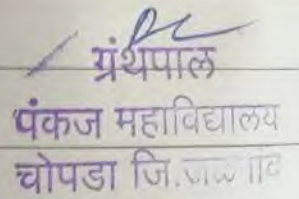 ग्रंथपाल
पंकज महाविद्यालय
चोपडा जि.